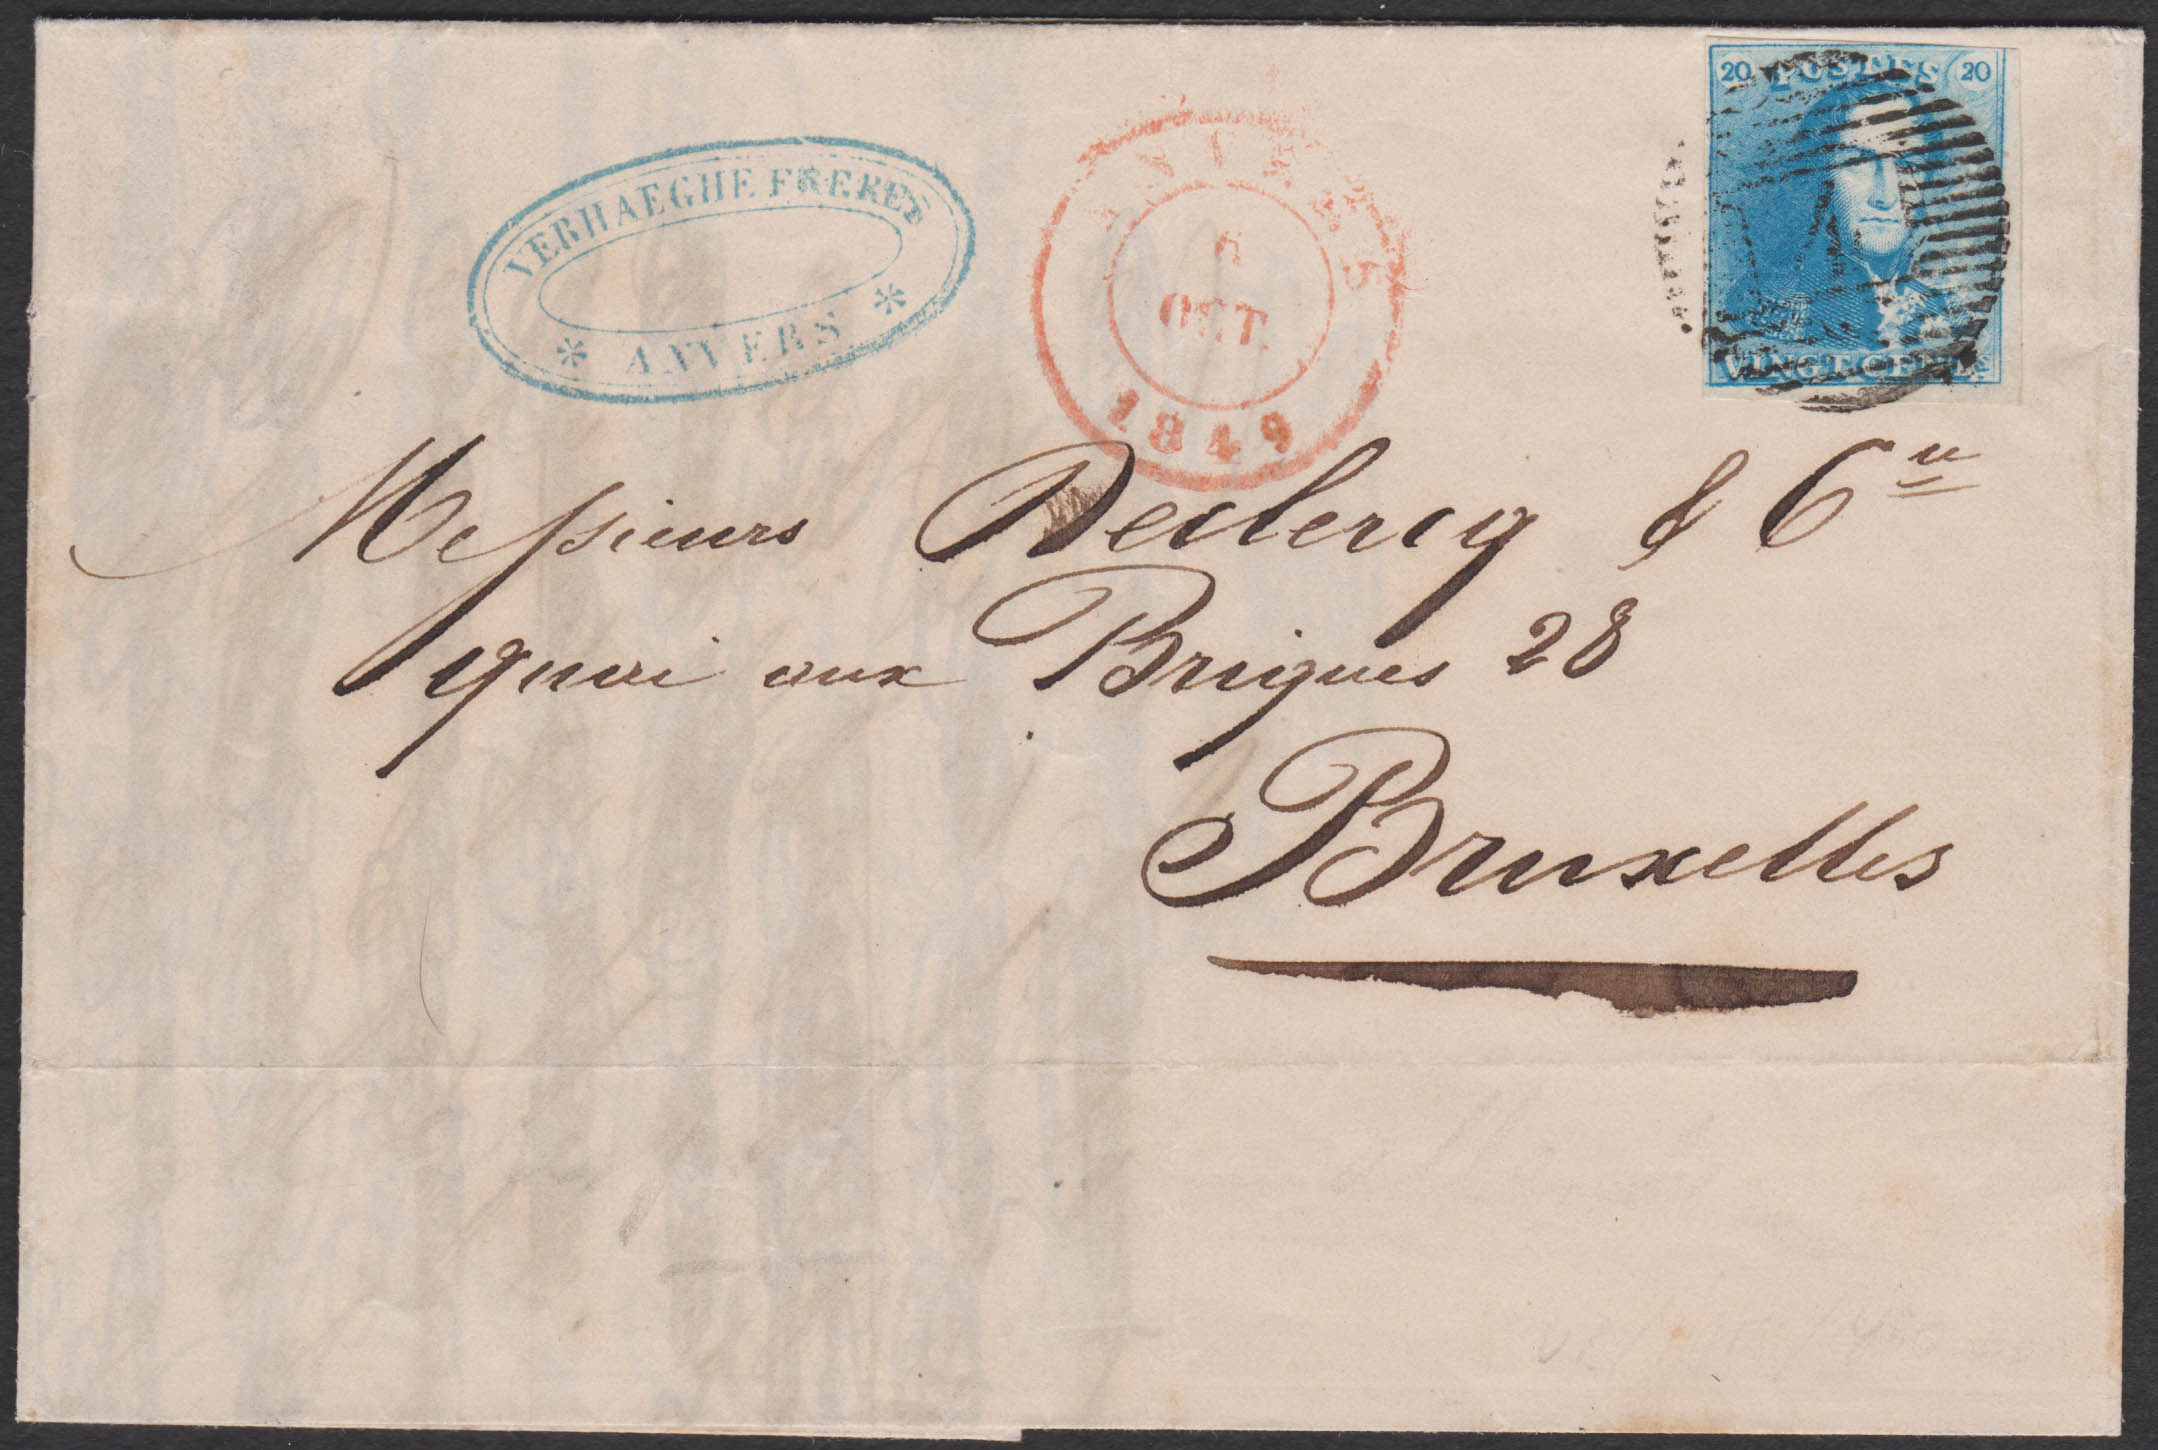 20 POSTES 20
VINGT CENT.
VERHAEGHE FRERES
* ANVERS *
ANVERS
6
OCT.
1849
Messieurs Declercq & Cie
quai aux Briques 28
Bruxelles